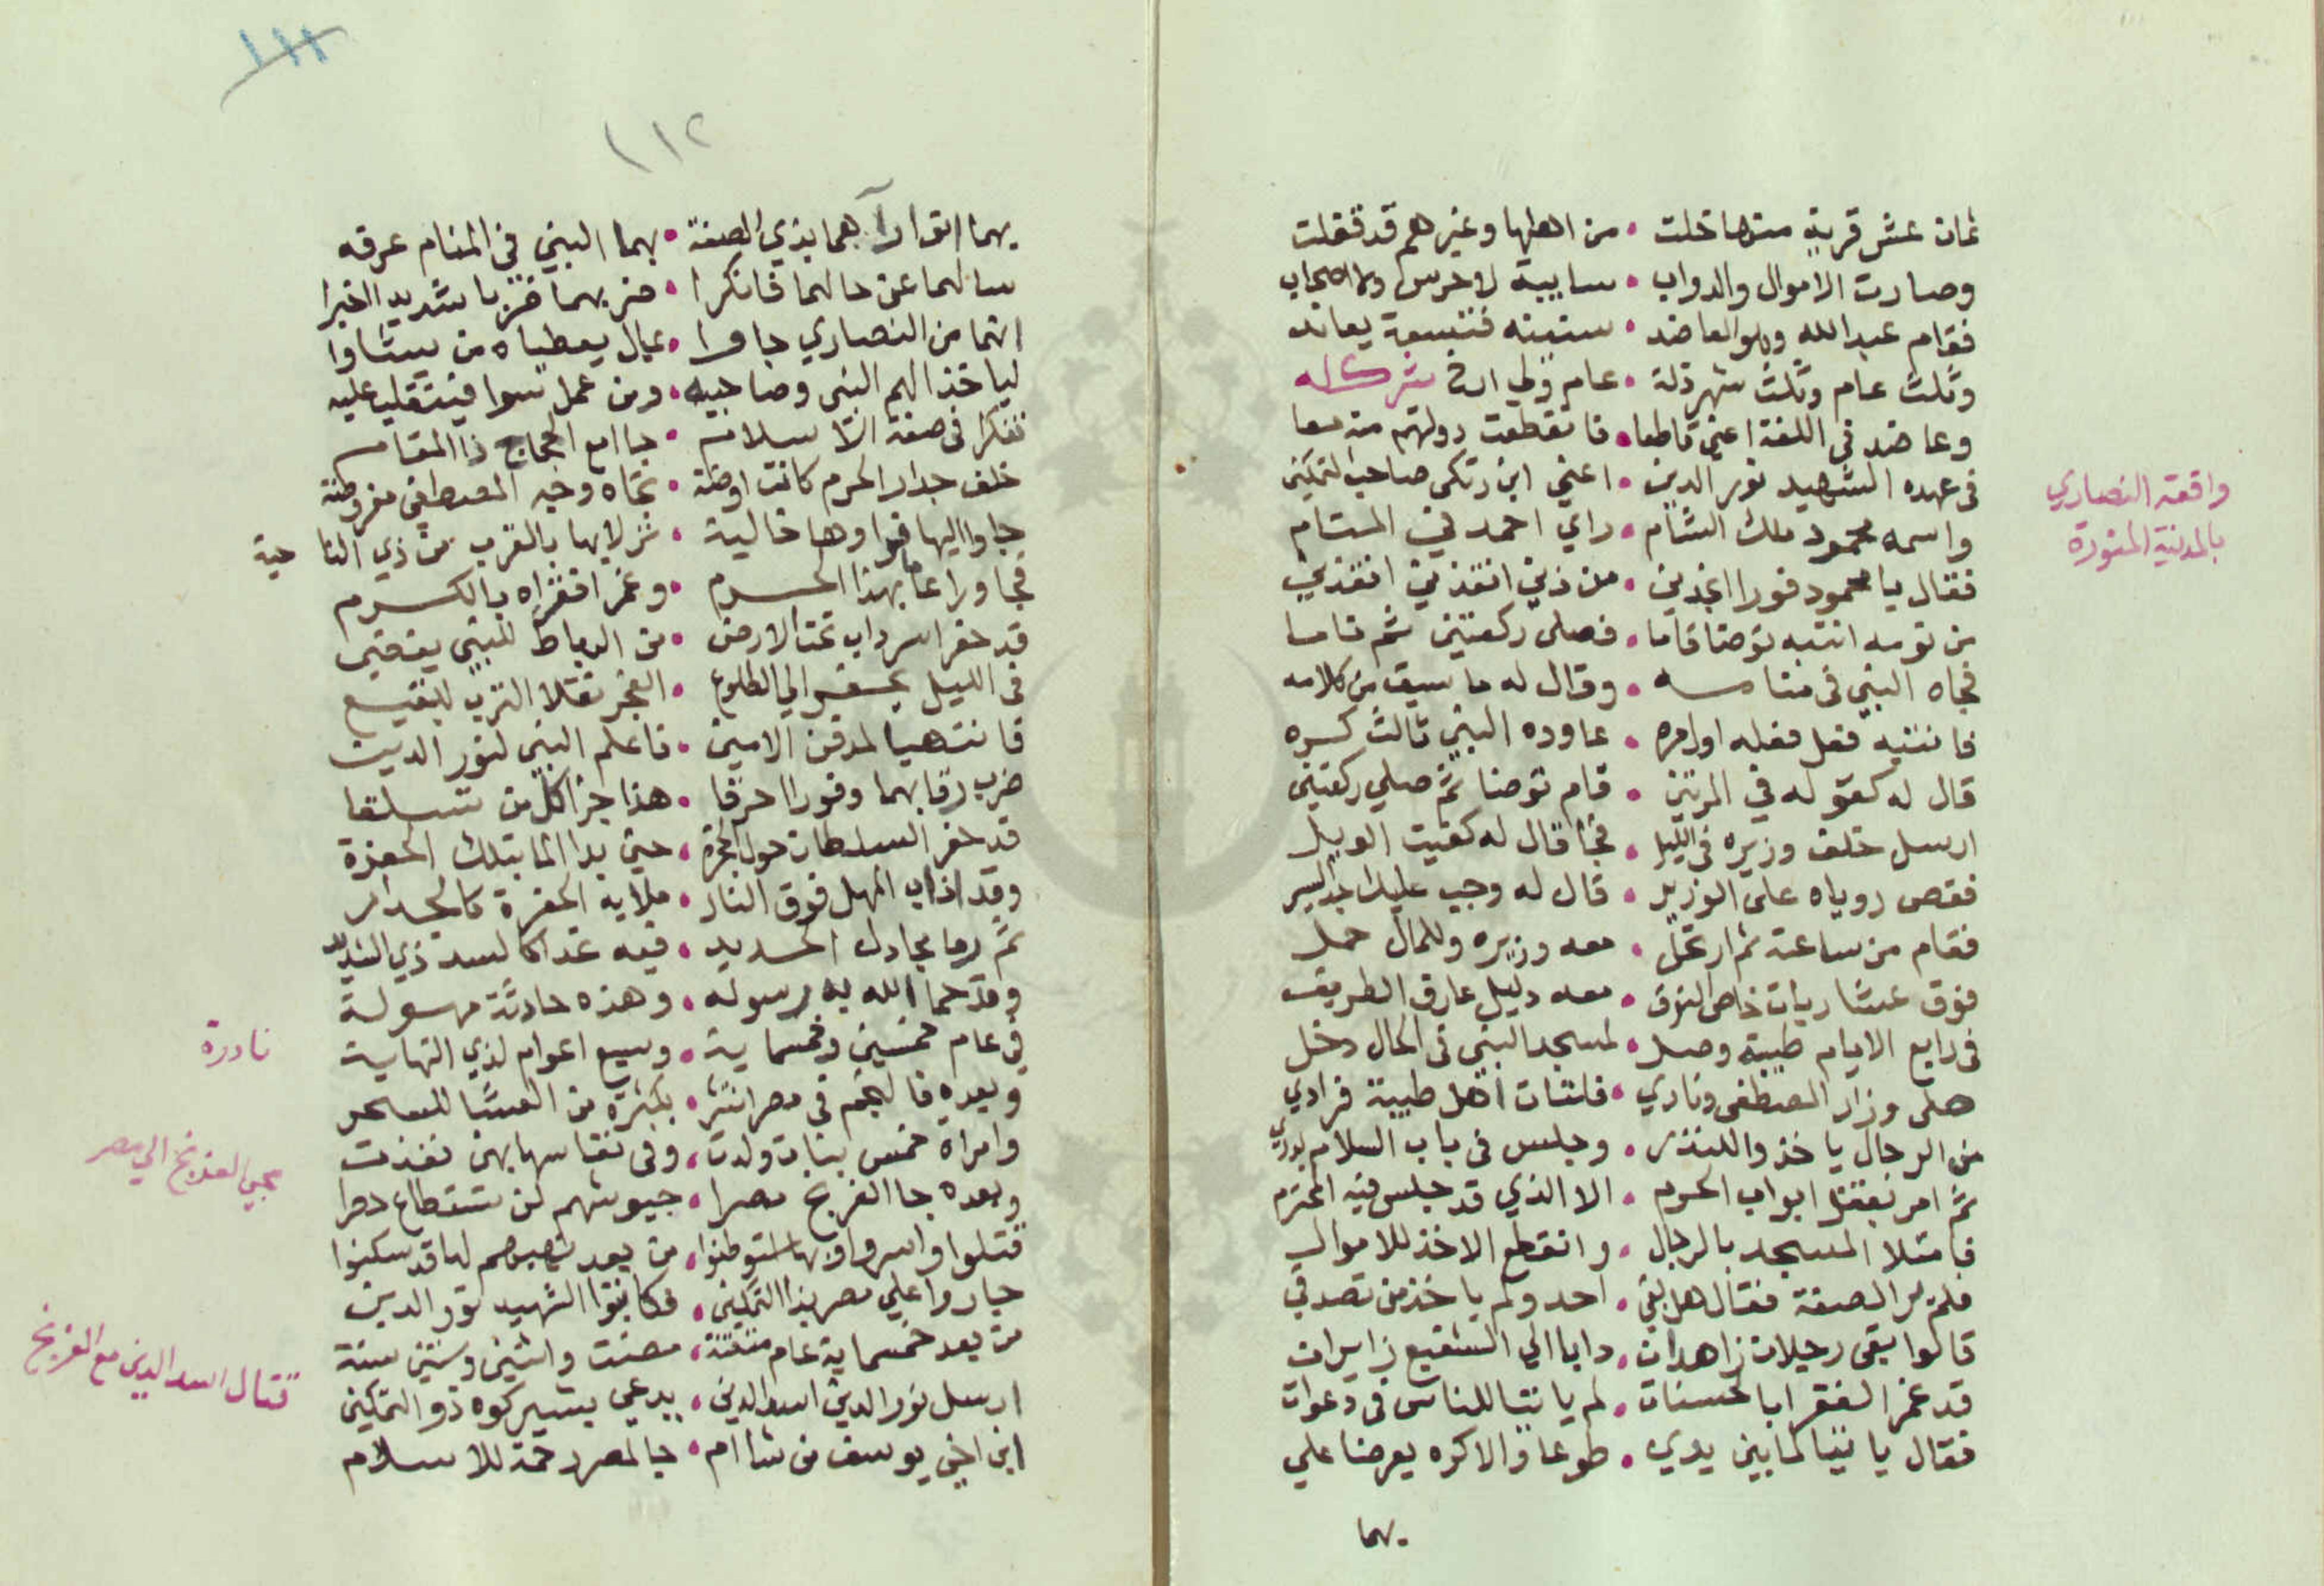 ثمان عشر قرية منها خلت • من اهلها وغيرهم قد قفلت
وصارت الاموال والدواب • سايبة لا حرس ولا اصحاب
فقام عبد الله وهو العاضد • ستينه فتسعة يعاند
وثلث عام وثلث شهر ذلة • عام ولي ارخ شركا له
وعاضد في اللغة اعني قاطعا • فانقطعت دولتهم منه معا
في عهده الشهيد نور الدين • اعني ابن زنكي صاحب التمكين
واقعة النصاري
بالمدينة المنورة
واسمه محمود ملك الشام • راي احمد في المنام
فقال يا محمود فورا انجدني • من ذين انقذني انقذني
من نومه انتبه توضا قاما • فصلى ركعتين ثم ناما
فجاه النبي في منامه • وقال له ما سبق من كلامه
فانتبه فعل فعله اوامره • عاوده النبي ثالث كره
قال له كقوله في المرتين • قام توضا ثم صلي ركعتين
ارسل خلف وزيره في الليل • فجا قال له كفيت الويل
فقص روياه على الوزير • قال له وجب عليك السير
فقام من ساعته ثم ارتحل • معه وزيره وللمال حمل
فوق عشاريات خاص النوق • معه دليل عارف الطريق
في رابع الايام طيبة وصل • لمسجد النبي في الحال دخل
صلى وزار المصطفى ونادي • فلتات اهل طيبة فرادي
من الرجال ياخذوا للنذر • وجلس في باب السلام
ثم امر بقفل ابواب الحرم • الا الذي قد جلس فيه المحترم
فامتلا المسجد بالرجال • وانقطع الاخذ للاموال
فلم ير الصفة فقال هل بقي • احد ولم ياخذ من تصدقي
قالوا بقي رجلان زاهدان • دابا الي الشفيع زايران
قد غمر الفقرا بالحسنات • لم ياتيا للناس في دعوات
فقال ياتيا لما بين يدي • طوعا والا كره يعرضا علي
بهما
١١١
١١٢
بهما اتوا راهما بذي الصفة • بهما النبي في المنام عرفه
سالهما عن حالهما فانكرا • ضربهما ضربا شديدا اخبرا
انهما من النصاري جاوا • بمال يعطياه من يشاوا
لياخذ الهم النبي وصاحبيه • ومن عمل سوا فينقلب عليه
تنكرا في صفة الاسلام • جاا مع الحجاج ذا المقام
خلف جدار الحرم كانت اوضة • تجاه وجه المصطفى مفروضة
جاوا اليها فراوها خالية • نزلا بها بالقرب من ذي الناحية
فجاورا عاما بهذا الحرم • وغمرا فقراه بالكرم
قد حفرا سرداب تحت الارض • من الرباط للنبي يفضي
في الليل يحفرا الي الطلوع • الفجر نقلا الترب للبقيع
فانتهيا لمدفن الامين • فاعلم النبي لنور الدين
ضرب رقابهما وفورا حرقا • هذا جزا كل من تسلقا
قد حفر السلطان حول الحجرة • حتى بدا الما بتلك الحفرة
وقد اذاب المهل فوق النار • ملا به الحفرة كالجدار
ثم رما بجادل الحديد • فيه غدا كالسد ذي التشديد
وقد حما الله به رسوله • وهذه حادثة مهولة
نادرة
في عام خمسين وخمسماية • وسبع اعوام لذي النهاية
وبعده فالنجم في مصر انتثر • بكثرة من العشا للسحر
وامراة خمس بنات ولدت • وفي نفاسها بهن نفذت
مجي الفرنج الي مصر
وبعده جا الفرنج مصرا • جيوشهم لن تستطاع حصرا
قتلوا واسروا وبها استوطنوا • من بعد نهبهم لها قد سكنوا
جاروا علي مصر بذا التمكين • فكاتبوا الشهيد نور الدين
من بعد خمسماية عام متقنة • مضت واثنين وستين سنة
قتال اسد الدين مع الفرنج
ارسل نور الدين اسد الدين • يدعي بشيركوه ذو التمكين
ابن اخي يوسف من شا ام • جا لمصر رحمة للاسلام